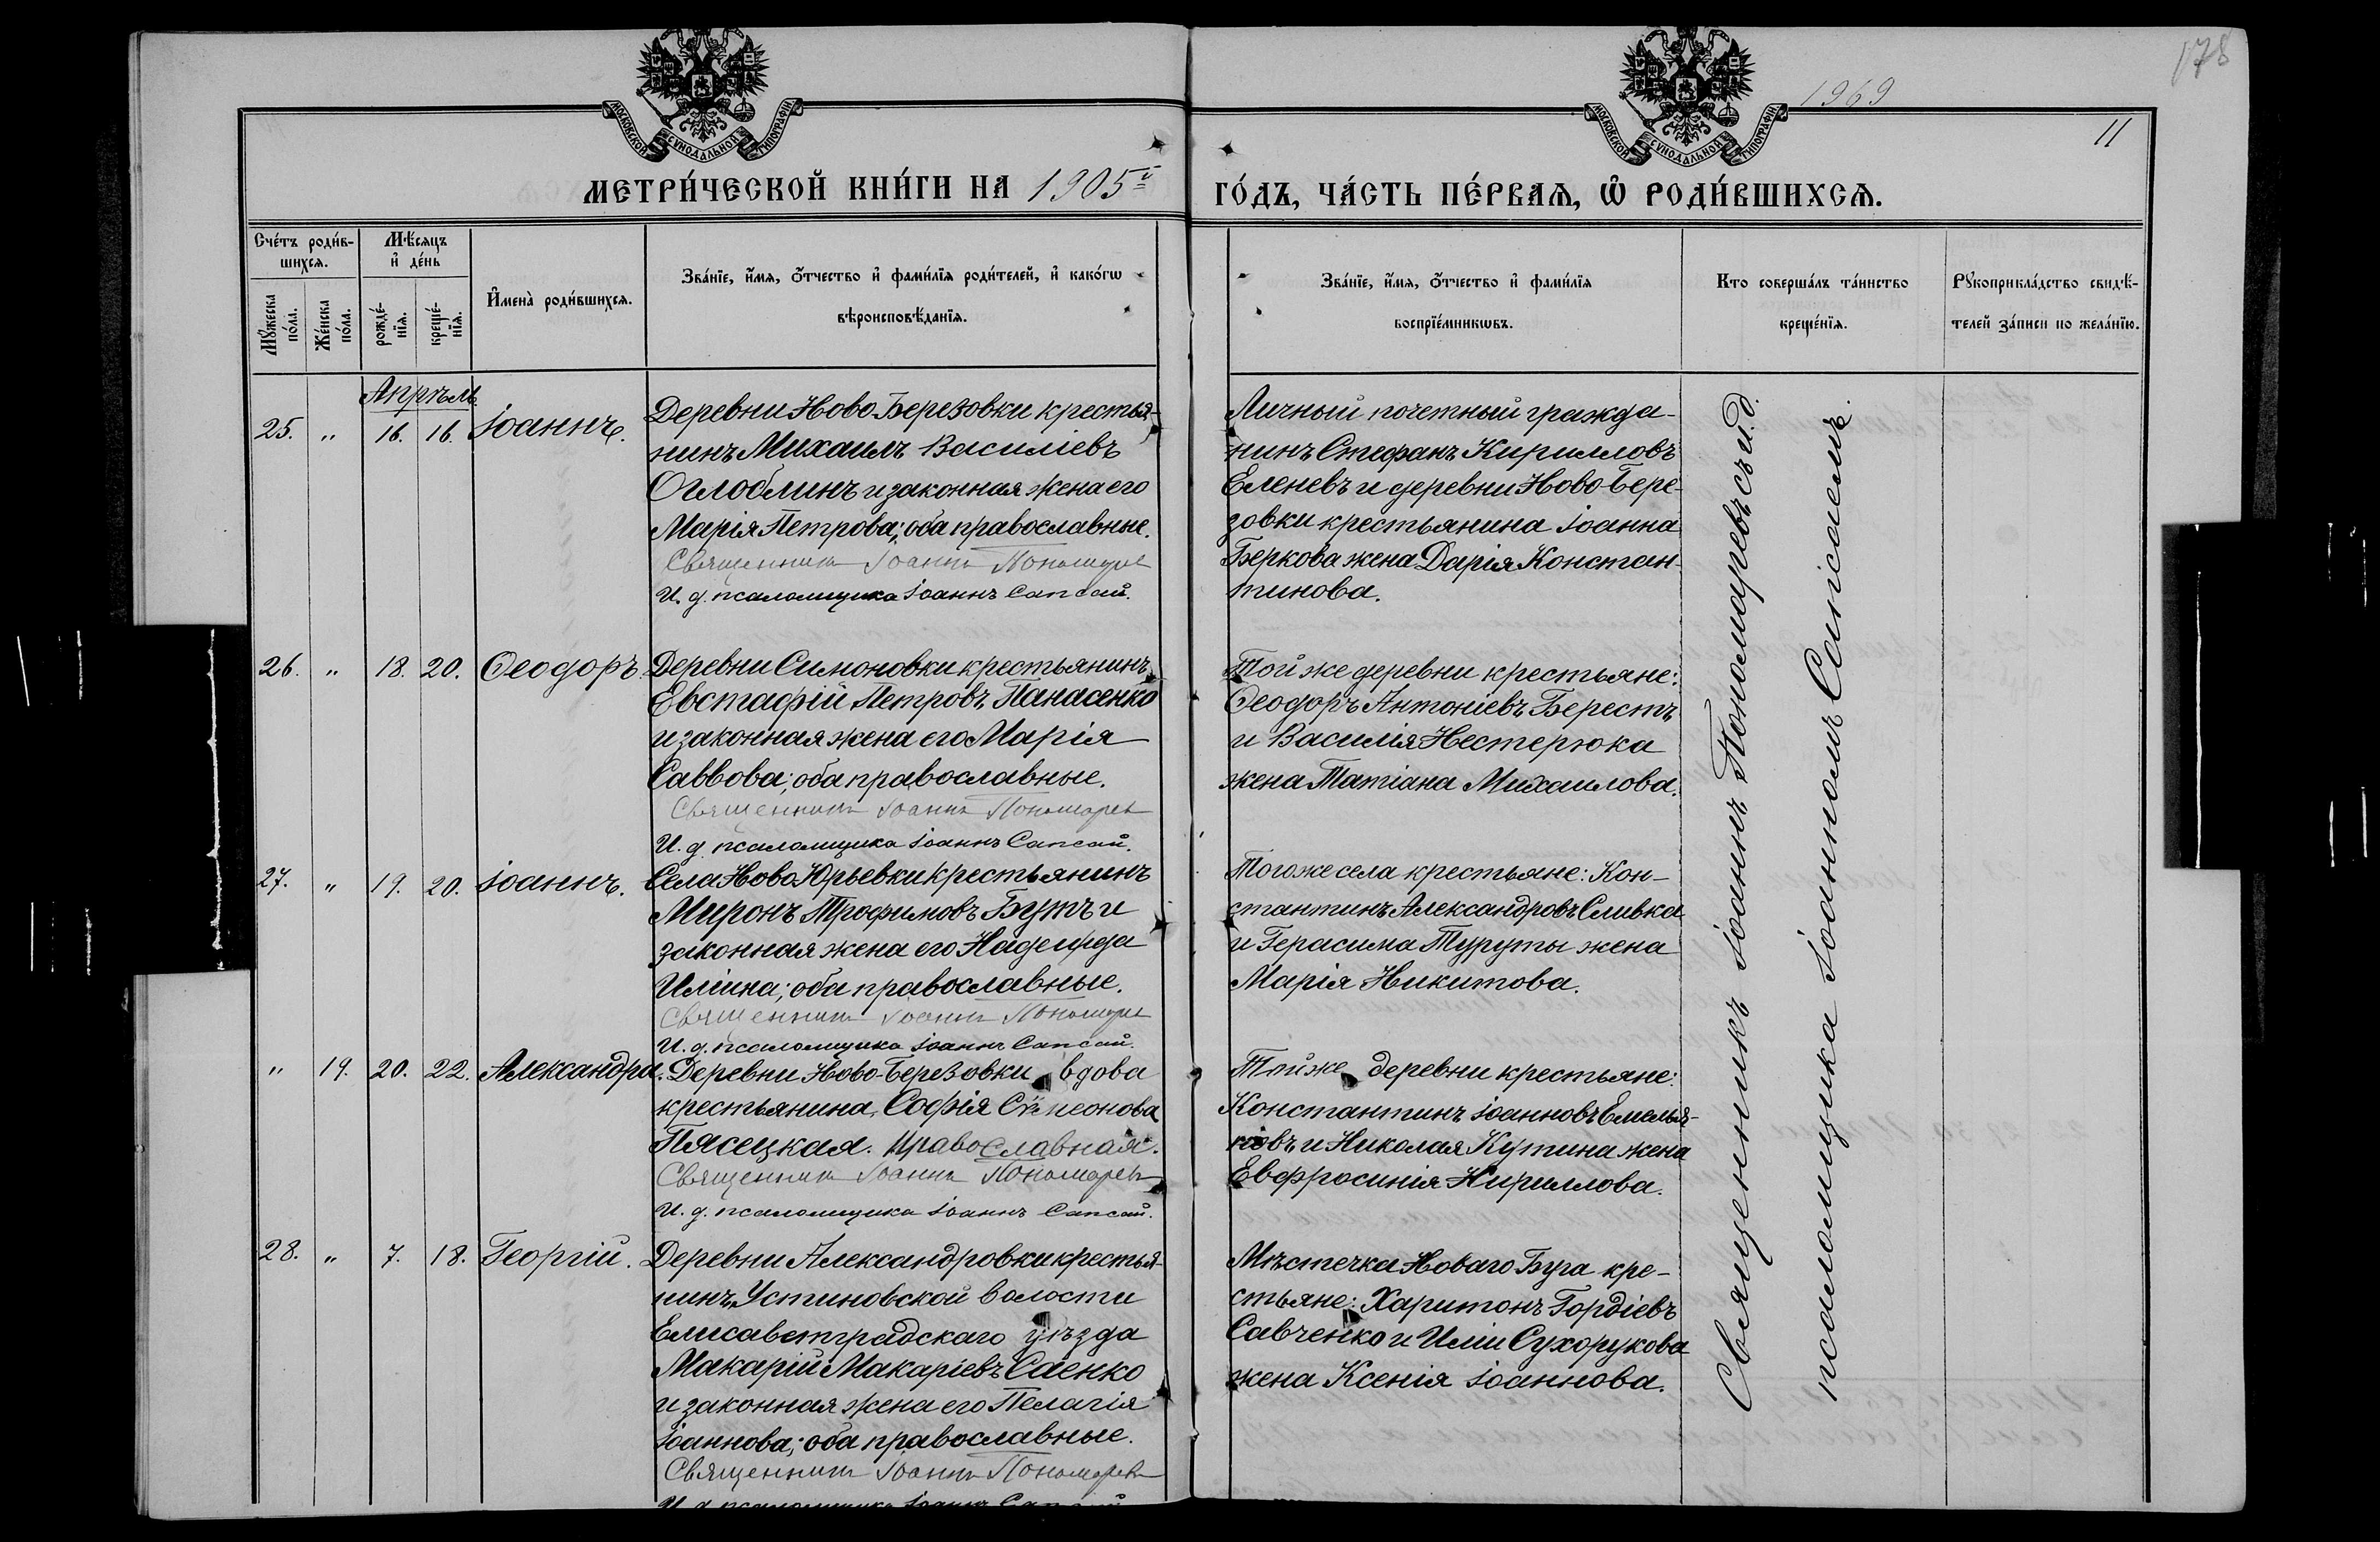 178
1969
11
МОСКОВСКОЙ СѴНОДАЛЬНОЙ ТИПОГРАФІИ
МОСКОВСКОЙ СѴНОДАЛЬНОЙ ТИПОГРАФІИ
МЕТРИ́ЧЕСКОЙ КНИ́ГИ НА 1905й ГО́ДЪ, ЧА́СТЬ ПЕ́РВАѦ, Ѡ҆ РОДИ́ВШИХСѦ.
Сче́тъ роди́в-
шихсѧ.
Мѣ́сѧцъ
и҆ де́нь
Мꙋ́жеска
по́ла.
Же́нска
по́ла.
рожде́-
нїѧ.
креще́-
нїѧ.
И҆мена̀ роди́вшихсѧ.
Зва́нїе, и҆́мѧ, ѻ҆́тчество и҆ фами́лїѧ роди́телей, и҆ како́гѡ
вѣроисповѣ́данїѧ.
Зва́нїе, и҆́мѧ, ѻ҆́тчество и҆ фами́лїѧ
воспрїе́мникѡвъ.
Кто соверша́лъ та́инство
креще́нїѧ.
Рꙋкоприкла́дство свидѣ́-
телей за́писи по жела́нїю.
Апрѣль
25. " 16. 16. Іоаннъ.
Деревни Ново-Березовки крестья-
нинъ Михаилъ Василіевъ
Оглоблинъ и законная жена его
Марія Петрова; оба православные.
Священникъ Іоаннъ Пономарев
И. д. псаломщика Іоаннъ Сапсай.
Личный почетный гражда-
нинъ Стефанъ Кирилловъ
Еленевъ и деревни Ново-Бере-
зовки крестьянина Іоанна
Беркова жена Дарія Констан-
тинова.
26. " 18. 20. Ѳеодоръ.
Деревни Симоновки крестьянинъ
Евстафій Петровъ Панасенко
и законная жена его Марія
Саввова; оба православные.
Священникъ Іоаннъ Пономарев
И. д. псаломщика Іоаннъ Сапсай.
Той же деревни крестьяне:
Ѳеодоръ Антоніевъ Берестъ
и Василія Нестерюка
жена Татіана Михаилова.
27. " 19. 20. Іоаннъ.
Села Ново-Юрьевки крестьянинъ
Миронъ Трофимовъ Бутъ и
законная жена его Надежда
Иліина; оба православные.
Священникъ Іоаннъ Пономарев
И. д. псаломщика Іоаннъ Сапсай.
Того же села крестьяне: Кон-
стантинъ Александровъ Сливка
и Герасима Туруты жена
Марія Никитова.
" 19. 20. 22. Александра.
Деревни Ново-Березовки вдова
крестьянина, Софія Сѵмеонова
Пясецкая. православная.
Священникъ Іоаннъ Пономарев
И. д. псаломщика Іоаннъ Сапсай.
Той же деревни крестьяне:
Константинъ Іоанновъ Емелья-
новъ и Николая Кутина жена
Евфросинія Кириллова.
28. " 7. 18. Георгій.
Деревни Александровки крестья-
нинъ, Устиновской волости
Елисаветградскаго уѣзда
Макарій Макаріевъ Саенко
и законная жена его Пелагія
Іоаннова; оба православные.
Священникъ Іоаннъ Пономарев
И. д. псаломщика Іоаннъ Сапсай
Мѣстечка Новаго Буга кре-
стьяне: Харитонъ Гордіевъ
Савченко и Иліи Сухорукова
жена Ксенія Іоаннова.
Священникъ Іоаннъ Пономаревъ съ и. д.
псаломщика Іоанномъ Сапсаемъ.